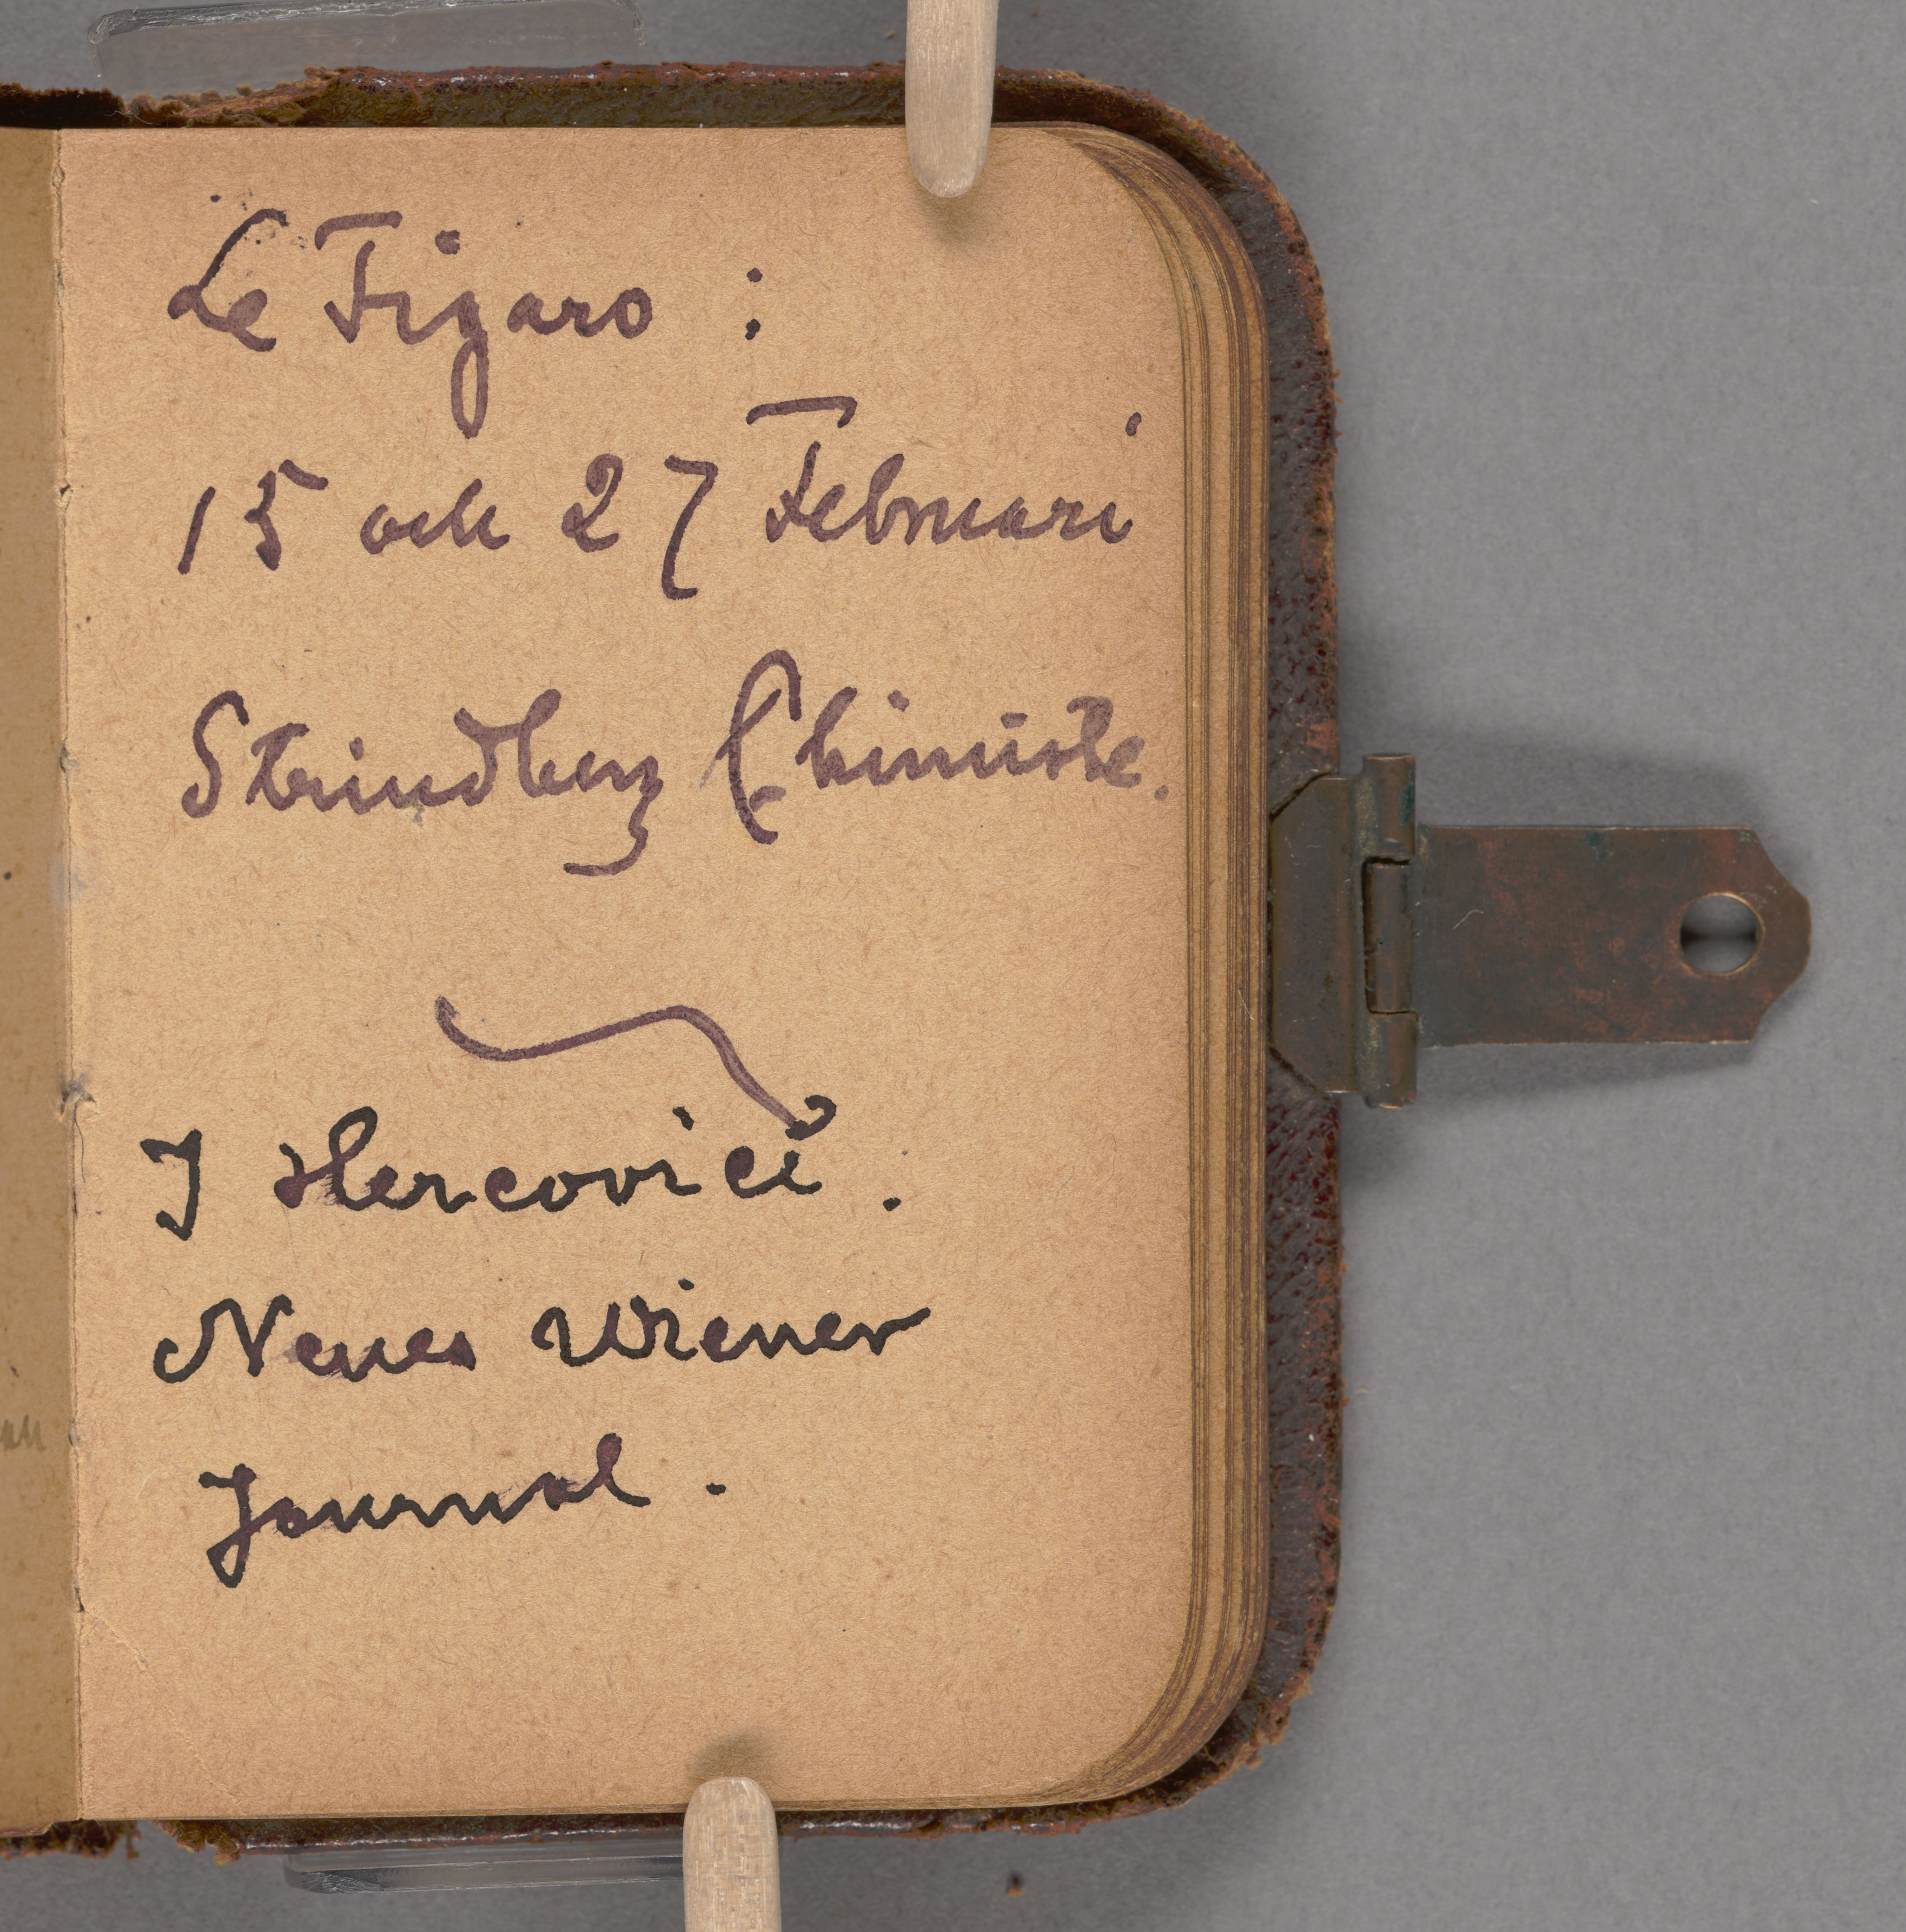 Le Figaro :
15 och 27 Februari
Strindberg Chimiste.
J Hercovici.
Neues Wiener
Journal.